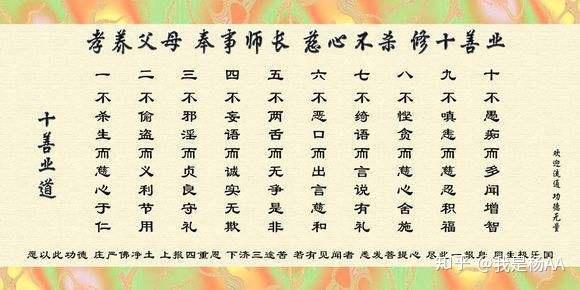 孝养父母 奉事师长 慈心不杀 修十善业
十善业道
一 不杀生而慈心于仁
二 不偷盗而义利节用
三 不邪淫而贞良守礼
四 不妄语而诚实无欺
五 不两舌而无争是非
六 不恶口而出言慈和
七 不绮语而言说有礼
八 不悭贪而慈心舍施
九 不嗔恚而慈忍积福
十 不愚痴而多闻增智
欢迎流通 功德无量
愿以此功德 庄严佛净土 上报四重恩 下济三途苦 若有见闻者 悉发菩提心 尽此一报身 同生极乐国
知乎 @我是杨AA